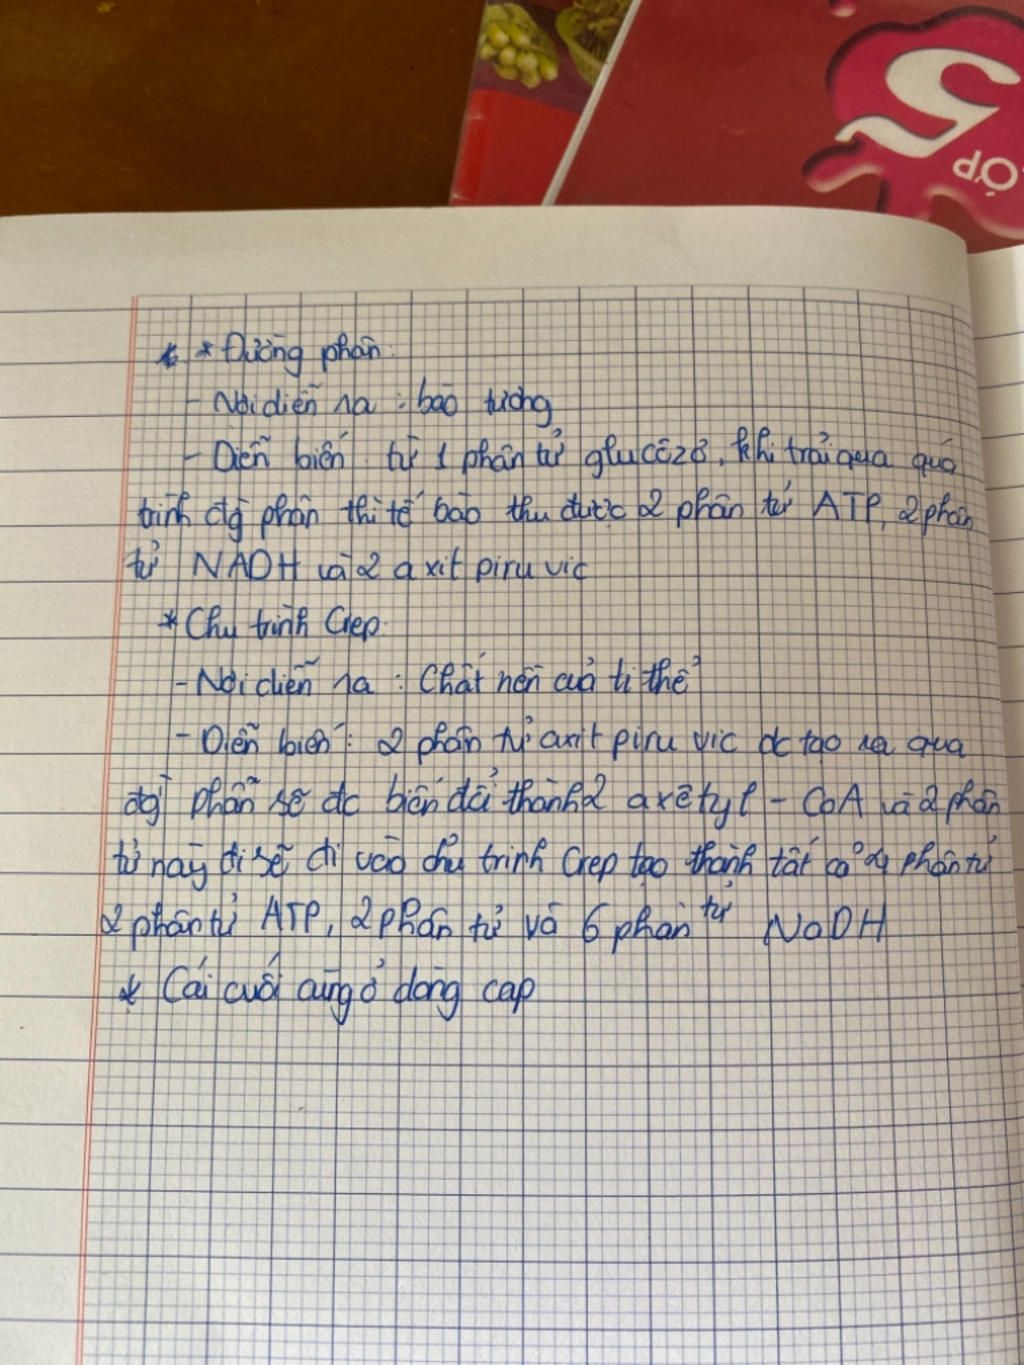 5
LỚP
* Đường phân:
- Nơi diễn ra : bào tương
- Diễn biến : từ 1 phân tử glucôzơ, khi trải qua quá
trình đg phân thì tế bào thu được 2 phân tử ATP, 2 phân
tử NADH và 2 axit piruvic
* Chu trình Crep:
- Nơi diễn ra : Chất nền của ti thể
- Diễn biến : 2 phân tử axit piruvic đc tạo ra qua
đg phân sẽ đc biến đổi thành 2 axêtyl - CoA và 2 phân
tử này đi sẽ đi vào chu trình Crep tạo thành tất cả phân tử
2 phân tử ATP, 2 phân tử và 6 phân tử NADH
* Cái cuối cùng ở dòng cap